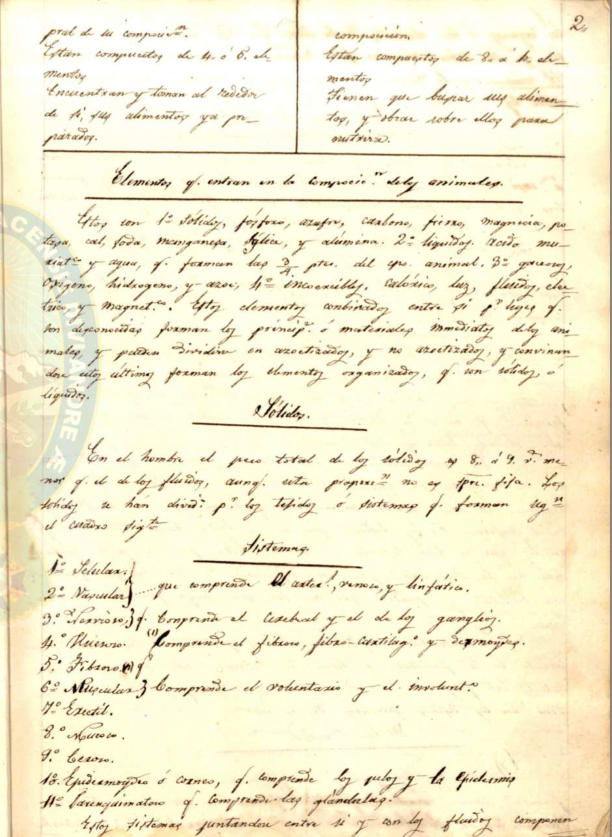 2.
pral de su composici.ⁿ
Estan compuestos de 4. ó 5. ele-
mentos
Encuentran y toman al rededor
de si, sus alimentos ya pre-
parados.
composición.
Están compuestos de 8. á 12. ele-
mentos
Tienen que buscar sus alimen-
tos, y obrar sobre ellos para
nutrirse.
Elementos q. entran en la composici.ⁿ delos animales.
Estos son 1.º Sólidos, fósforo, azufre, carbono, fierro, magnecia, po-
tasa, cal, soda, manganesa, sílice, y alúmina. 2.º líquidos. acido mu-
riat.co y agua, q. forman las 3/4 ptes. del cpo. animal. 3.º gaseosos,
Oxigeno, hidrogeno, y azoe, 4.º incoercibles, calórico, luz, fluidos elec-
trico, y magnet.co. Estos elementos combinados entre si pr. leyes q.
son desconocidas forman los princip.s ó materiales immediatos delos ani-
males, y pueden dividirse en azoetizados, y no azoetizados, y convinan-
dose estos ultimos forman los elementos organizados, q. son sólidos, ó
líquidos.
Sólidos.
En el hombre el peso total de los sólidos es 8,, á 9. v.s me-
nos q. el de los fluidos, aunq. esta proporc.n no es spre. fija. Los
sólidos se hán divid.º pr. los tejidos ó sistemas q. forman seg.n
el cuadro sig.te
Sistemas.
1.º Selular.
2.º Vascular que comprende el arter.l, venoso, y linfático.
3.º Nervioso, q. Comprende el cerebral y el de los ganglios.
4.º Hueseso. (1) Comprende el fibroso, fibro-cartilag.º y dermoydes.
5.º Fibroso (1) q.e
6.º Muscular Comprende el voluntario y el involunt.º
7.º Erectil.
8.º Mucoso.
9.º Ceroso.
10. Epidermoydeo ó corneo, q. comprende los pelos y la epidermis
11.º Parenquimatoso q. comprende las glándulas.
Estos sistemas juntandose entre si y con los fluidos componen